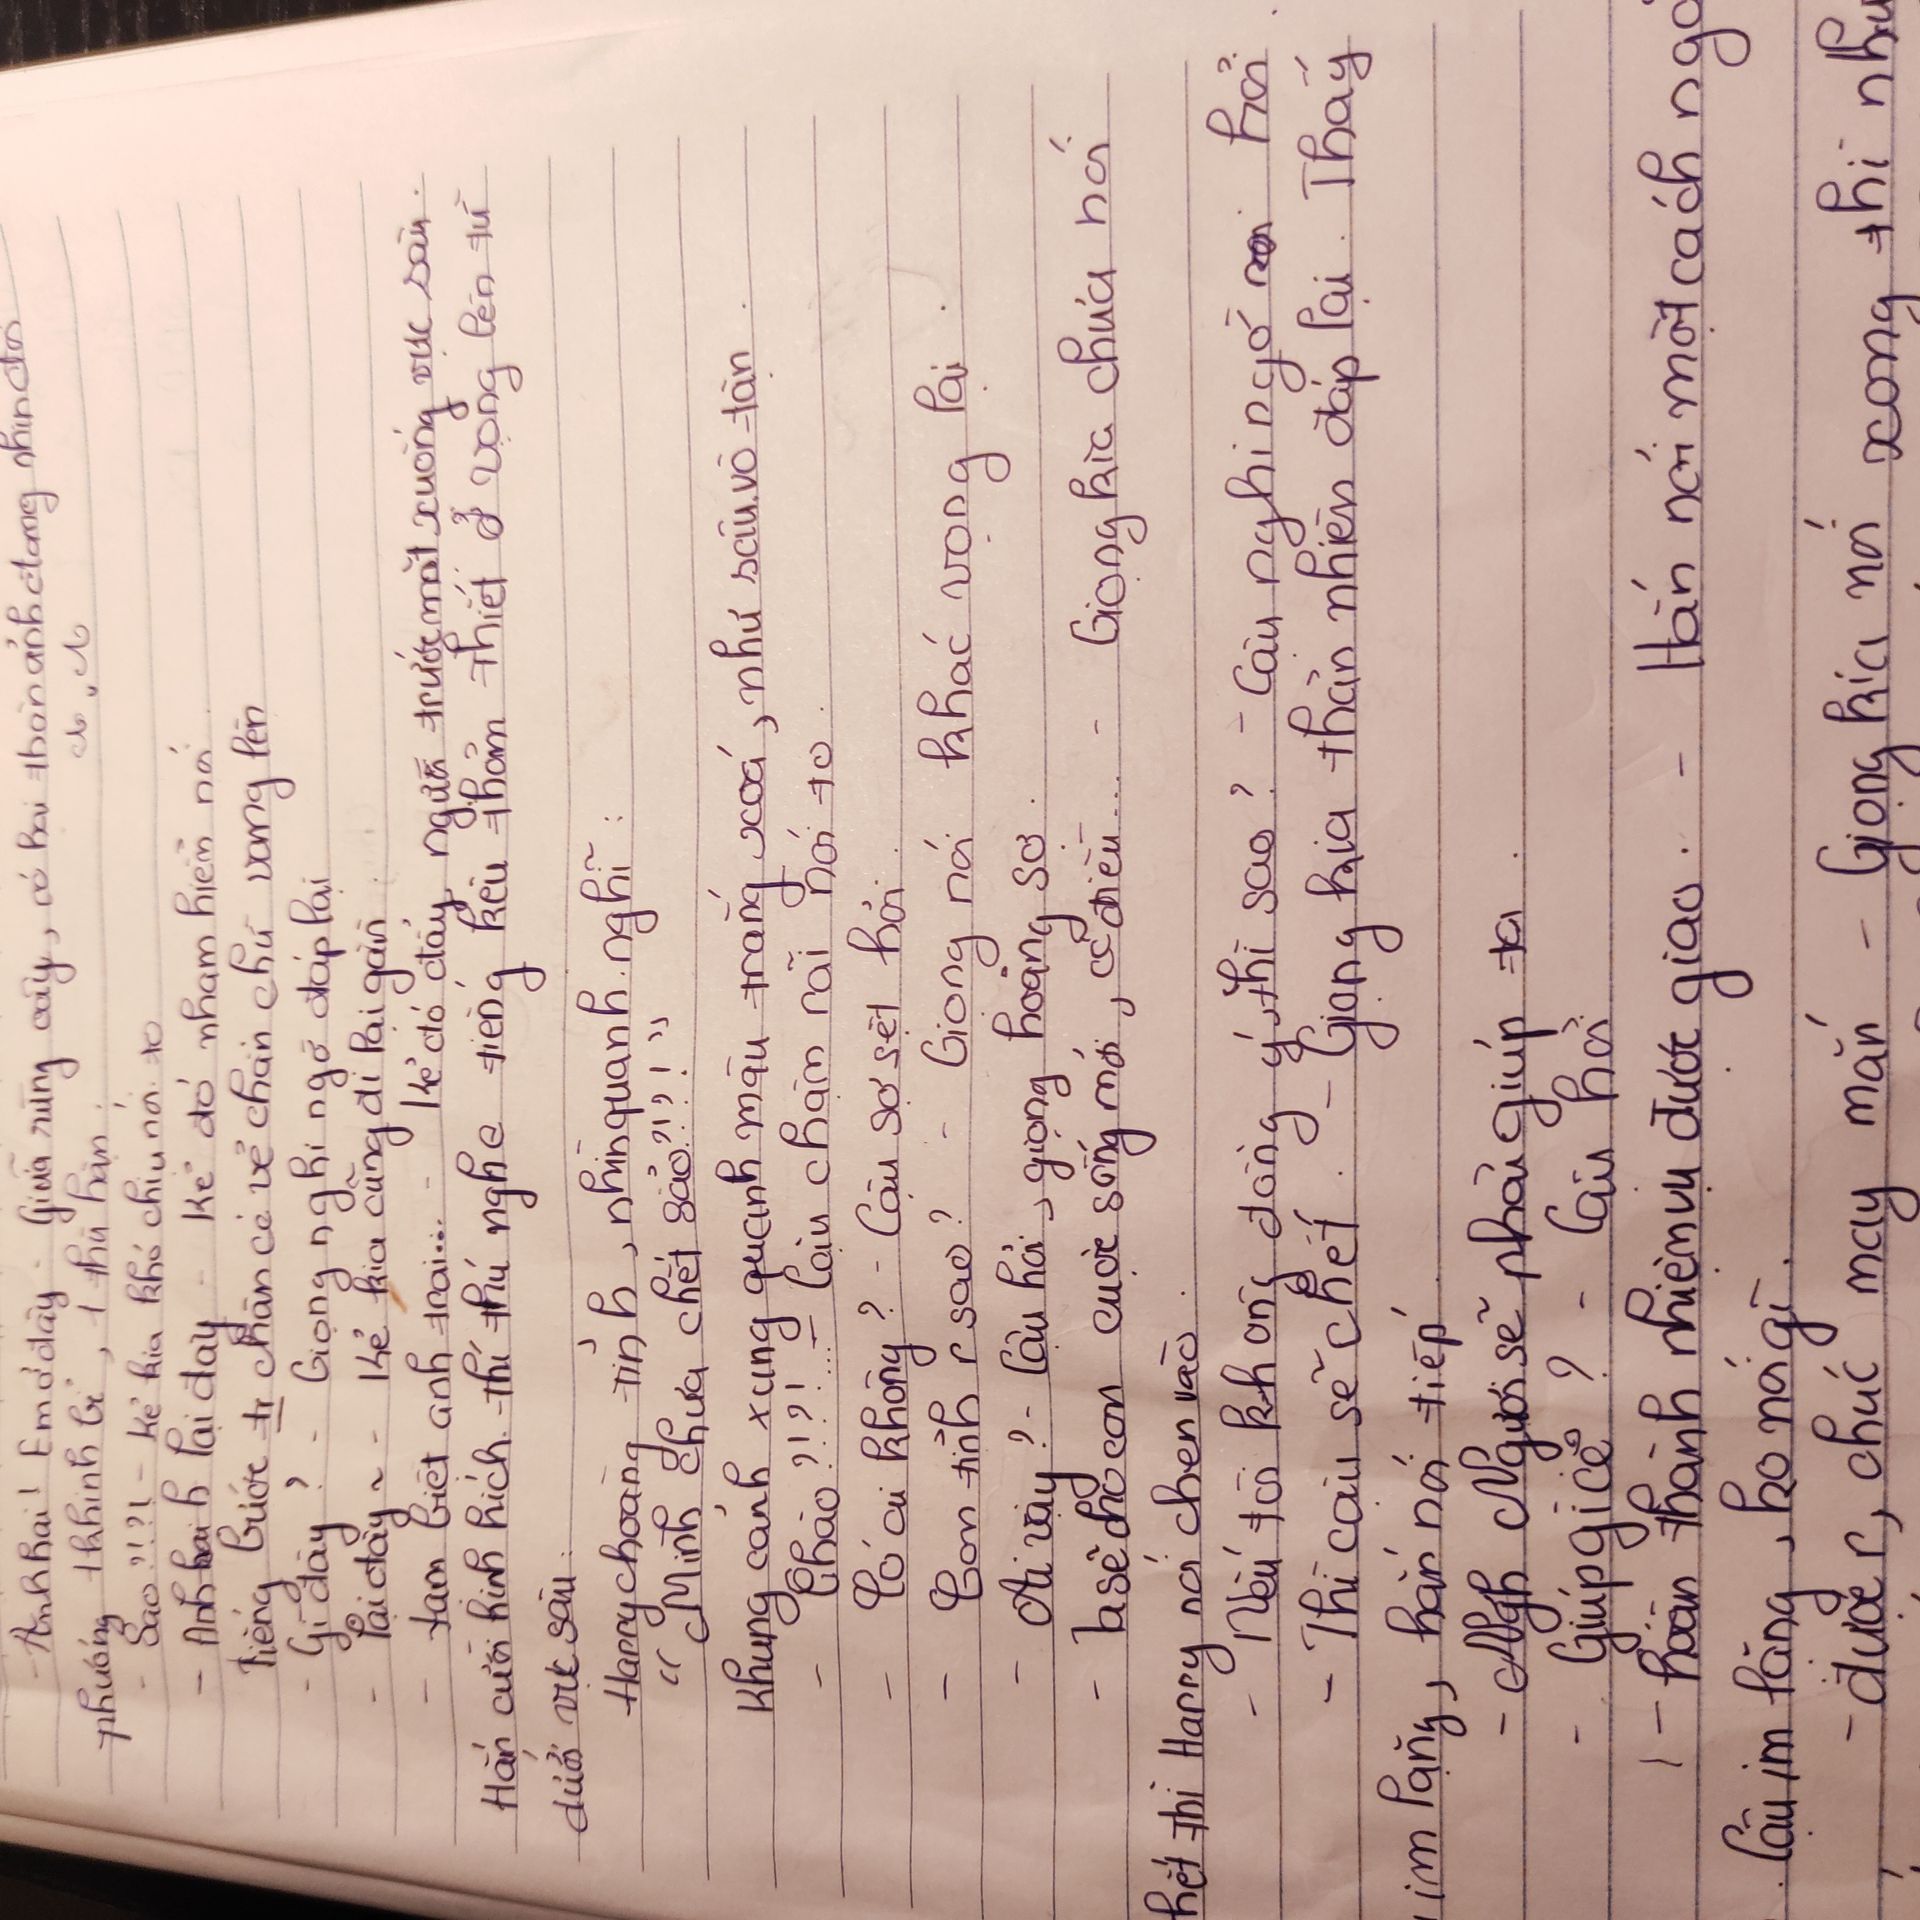 - Anh hai! Em ở đây - Giữa rừng cây, có hai thân ảnh đang nhìn đối
phương, 1 khinh bỉ, 1 thù hận.
- Sao?!?! - kẻ kia khó chịu nói to
- Anh hai lại đây - kẻ đó nham hiểm nói
Tiếng bước chân có vẻ chán chứ vang lên
- Gì đây? - Giọng nghi ngờ đáp lại
- Lại đây ~ - kẻ kia cũng đi lại gần.
- tạm biệt anh trai... - kẻ đó đẩy người trước mắt xuống vực sâu.
Hắn cười hinh hích. thú thú nghe tiếng kêu thảm thiết ở vọng lên từ
dưới vực sâu.
Harry choàng tỉnh, nhìn quanh. nghĩ:
" Mình chưa chết sao?!?!"
Khung cảnh xung quanh màu trắng xoá, như sâu vô tận.
- Chào?!?!... - Cậu chậm rãi nói to.
- Có ai không? - Cậu sợ sệt hỏi.
- Con tỉnh r sao? - Giọng nói khác vọng lại.
- Ai vậy? - Cậu hỏi, giọng hoảng sợ.
- ta sẽ cho con cuộc sống mới, có điều... - Giọng kia chưa nói
hết thì Harry nói chen vào.
- Nếu tôi không đồng ý, thì sao? - Cậu nghi ngờ hỏi.
- Thì cậu sẽ chết. - Giọng kia thản nhiên đáp lại. Thấy
im lặng, hắn nói tiếp.
- Ngươi sẽ phải giúp ta.
- Giúp gì cơ? - Cậu hỏi
- hoàn thành nhiệm vụ được giao. - Hắn nói một cách
Cậu im lặng, ko nói gì.
- được r, chúc may mắn - Giọng kia nói xong thì